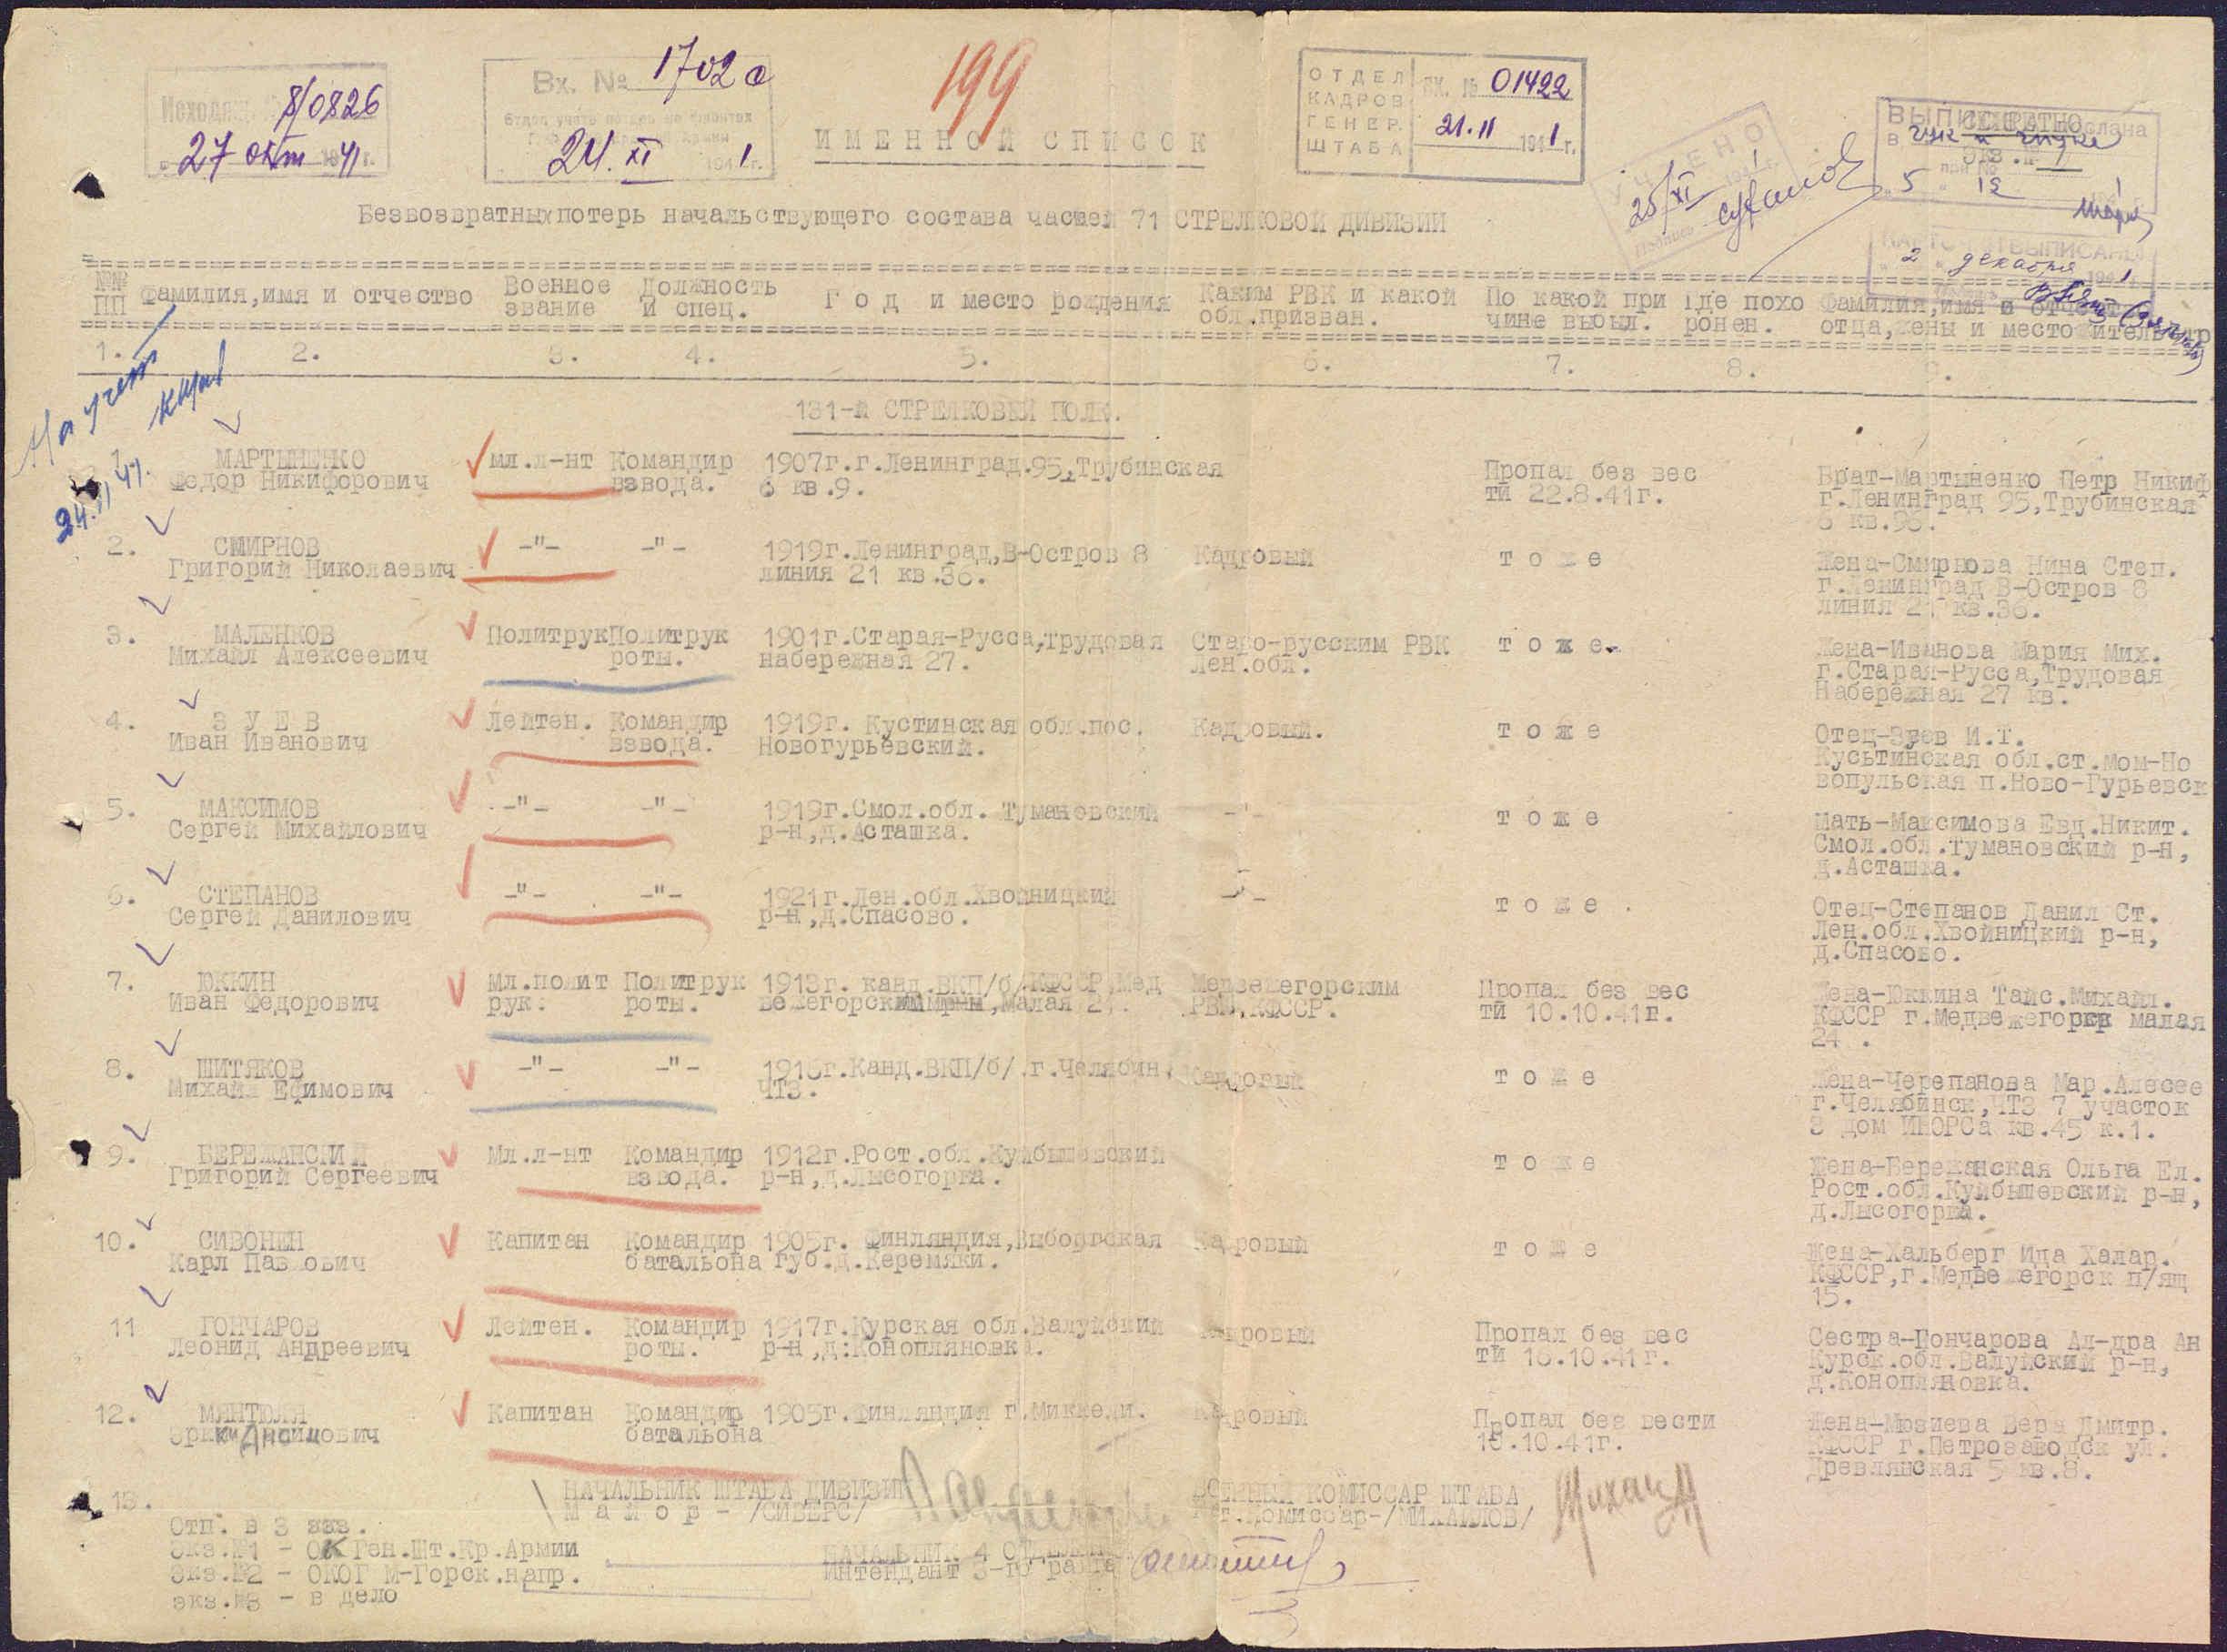 Исходящ. 8/0826
27 окт 1941г.
Вх. № 1702с
24. XI 1941г.
199
ОТДЕЛ КАДРОВ ГЕНЕР. ШТАБА
ВХ. № 01422
21.11 1941г.
УЧТЕНО
25/XI 1941г.
Подпись
СЕКРЕТНО
Экз. № 1
5 12
2 декабря 1941
ИМЕННОЙ СПИСОК
Безвозвратных потерь начальствующего состава частей 71 СТРЕЛКОВОЙ ДИВИЗИИ
№№ ПП
Фамилия,имя и отчество
Военное звание
Должность и спец.
Год и место рождения
Каким РВК и какой обл.призван.
По какой при чине выбыл.
Где похо ронен.
Фамилия,имя и отчест отца,жены и место житель
1. 2. 3. 4. 5. 6. 7. 8. 9.
На учет
24.11.41.
131-й СТРЕЛКОВЫЙ ПОЛК.
МАРТЫНЕНКО Мл.л-нт Командир 1907г.г.Ленинград.95,Трубинская Пропал без вес Брат-Мартыненко Петр Никиф
Федор Никифорович взвода. 6 кв.9. ти 22.8.41г. г.Ленинград 95,Трубинская
6 кв.96.
2. СМИРНОВ -"- -"- 1919г.Ленинград,В-Остров 8 Кадровый тоже Жена-Смирнова Нина Степ.
Григорий Николаевич линия 21 кв.36. г.Ленинград В-Остров 8
линия 21 кв.36.
3. МАЛЕНКОВ Политрук Политрук 1901г.Старая-Русса,Трудовая Старо-русским РВК тоже. Жена-Иванова Мария Мих.
Михаил Алексеевич роты. набережная 27. Лен.обл. г.Старая-Русса,Трудовая
Набережная 27 кв.
4. ЗУЕВ Лейтен. Командир 1919г. Кустинская обл.пос. Кадровый. тоже Отец-Зуев И.Т.
Иван Иванович взвода. Новогурьевский. Кусьтинская обл.ст.Мом-Но
вопульская п.Ново-Гурьевск
5. МАКСИМОВ -"- -"- 1919г.Смол.обл. Тумановский -"- тоже Мать-Максимова Евд.Никит.
Сергей Михайлович р-н,д.Асташка. Смол.обл.Тумановский р-н,
д.Асташка.
6. СТЕПАНОВ -"- -"- 1921г.Лен.обл.Хвойницкий -"- тоже. Отец-Степанов Данил Ст.
Сергей Данилович р-н,д.Спасово. Лен.обл.Хвойницкий р-н,
д.Спасово.
7. ЮККИН Мл.полит Политрук 1913г. канд.ВКП/б/.КФССР,Мед Медвежегорским Пропал без вес Жена-Юккина Таис.Михайл.
Иван Федорович рук. роты. вежегорский, Малая 24. РВК,КФССР. ти 10.10.41г. КФССР г.Медвежегорск малая
24.
8. ШИТЯКОВ -"- -"- 1916г.Канд.ВКП/б/.г.Челябин, Кадровый тоже Жена-Черепанова Мар.Алесее
Михаил Ефимович ЧТЗ. г.Челябинск,ЧТЗ 7 участок
8 дом ИНОРСа кв.45 к.1.
9. БЕРЕЖАНСКИЙ Мл.л-нт Командир 1912г.Рост.обл.Куйбышевский тоже Жена-Бережанская Ольга Ел.
Григорий Сергеевич взвода. р-н,д.Лысогорка. Рост.обл.Куйбышевский р-н,
д.Лысогорка.
10. СИВОНЕН Капитан Командир 1905г. Финляндия,Выборгская Кадровый тоже Жена-Хальберг Ида Халар.
Карл Павлович батальона губ.д.Керемяки. КФССР,г.Медвежегорск п/ящ
15.
11 ГОНЧАРОВ Лейтен. Командир 1917г.Курская обл.Валуйский Кадровый Пропал без вес Сестра-Гончарова Ал-дра Ан
Леонид Андреевич роты. р-н,д.Конопляновка. ти 16.10.41г. Курск.обл.Валуйский р-н,
д.Конопляновка.
12. МЯНТЮЛЯ Капитан Командир 1905г.Финляндия г.Миккели. Кадровый Пропал без вести Жена-Мюзиева Вера Дмитр.
батальона 16.10.41г. КФССР г.Петрозаводск ул.
Древлянская 5 кв.8.
13.
НАЧАЛЬНИК ШТАБА ДИВИЗИИ ВОЕННЫЙ КОМИССАР ШТАБА
Майор- /СИВЕРС/ Бат.Комиссар-/МИХАЙЛОВ/
НАЧАЛЬНИК 4 ОТДЕЛЕНИЯ
Интендант 3-го ранга
Отп. в 3 экз.
Экз.№1 - ОК Ген.Шт.Кр.Армии
Экз.№2 - ОКОГ М-Горск.напр.
экз.№3 - в дело